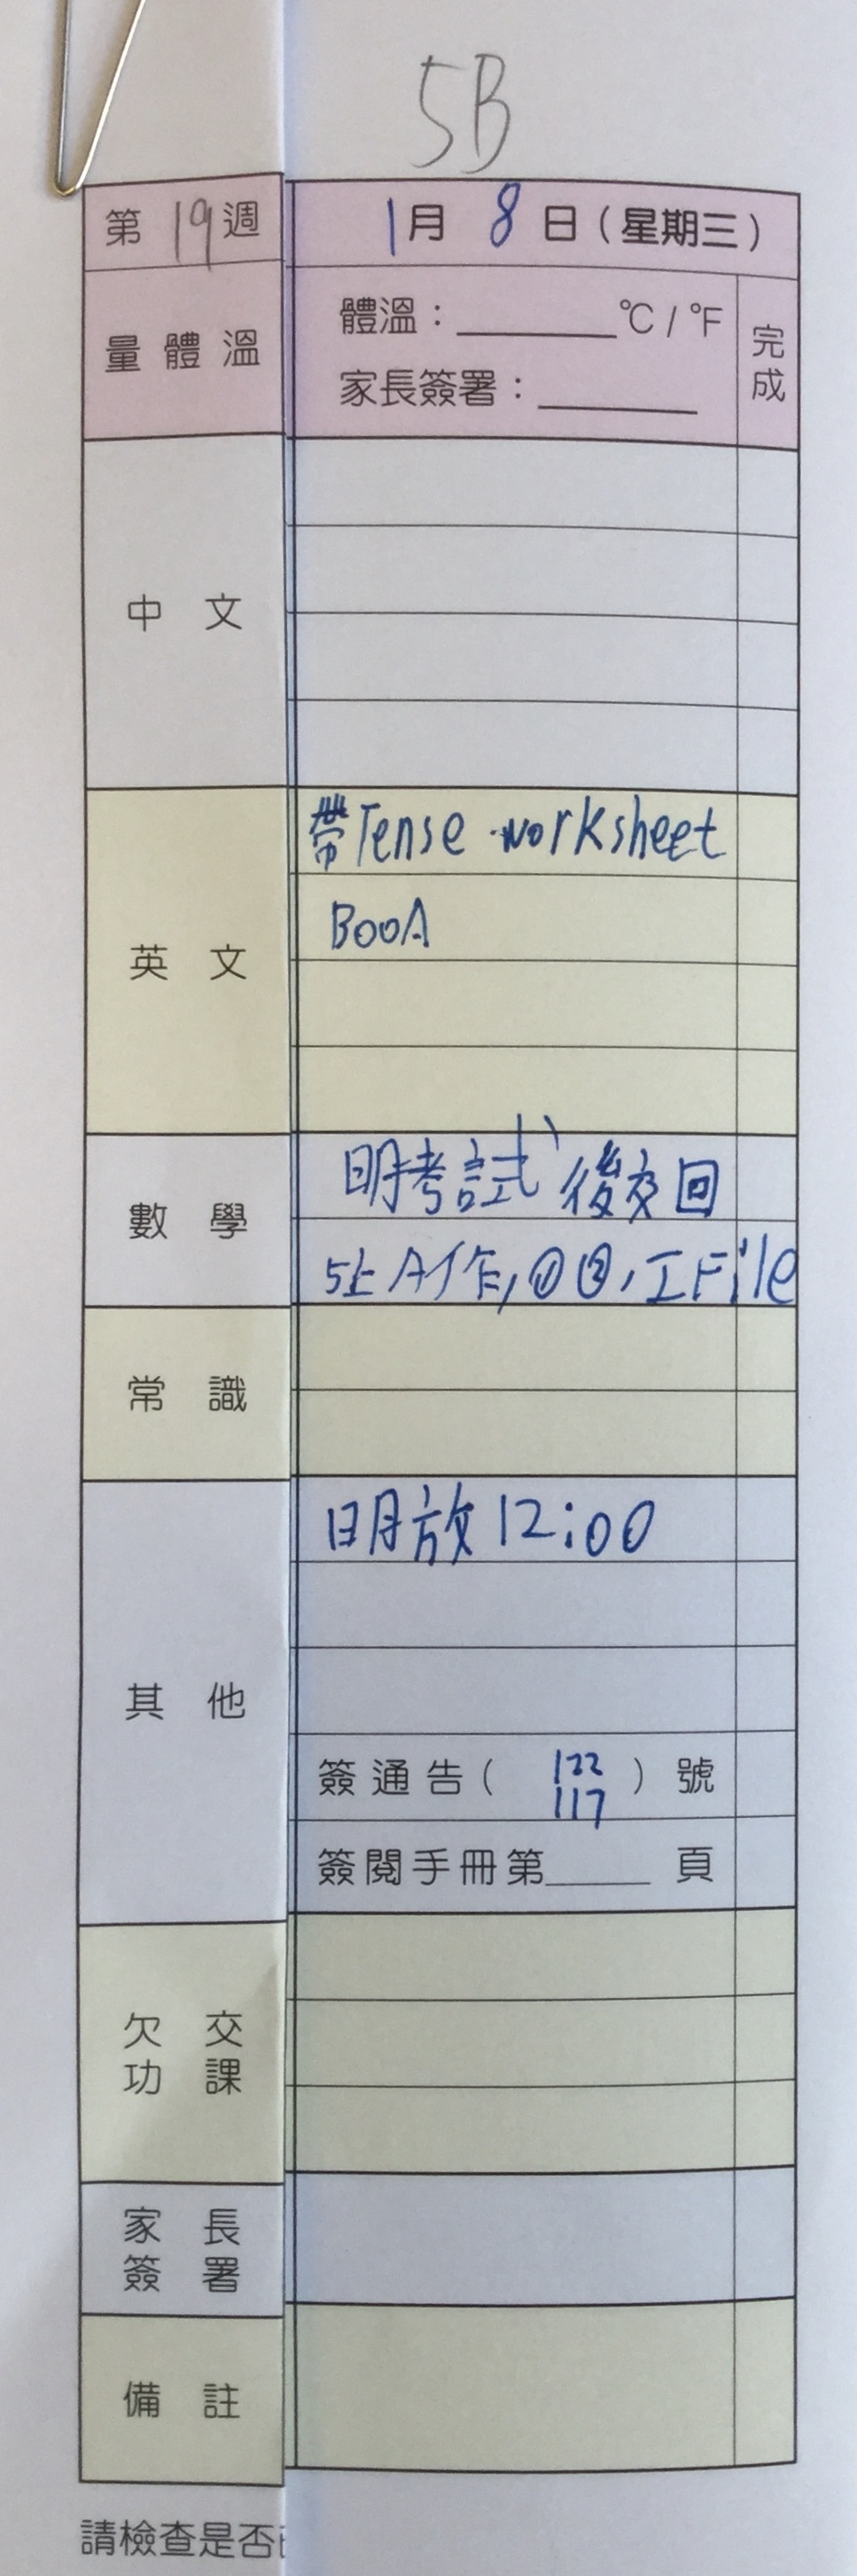 5B
第 19 週 1月 8 日(星期三)
量體溫 體溫:______℃/℉ 完成
家長簽署:______
中文
英文
帶Tense worksheet
BooA
數學
明考試後交回
5上A作,①②,工File
常識
其他
明放12:00
簽通告( 122 117 )號
簽閱手冊第____頁
欠交功課
家長簽署
備註
請檢查是否